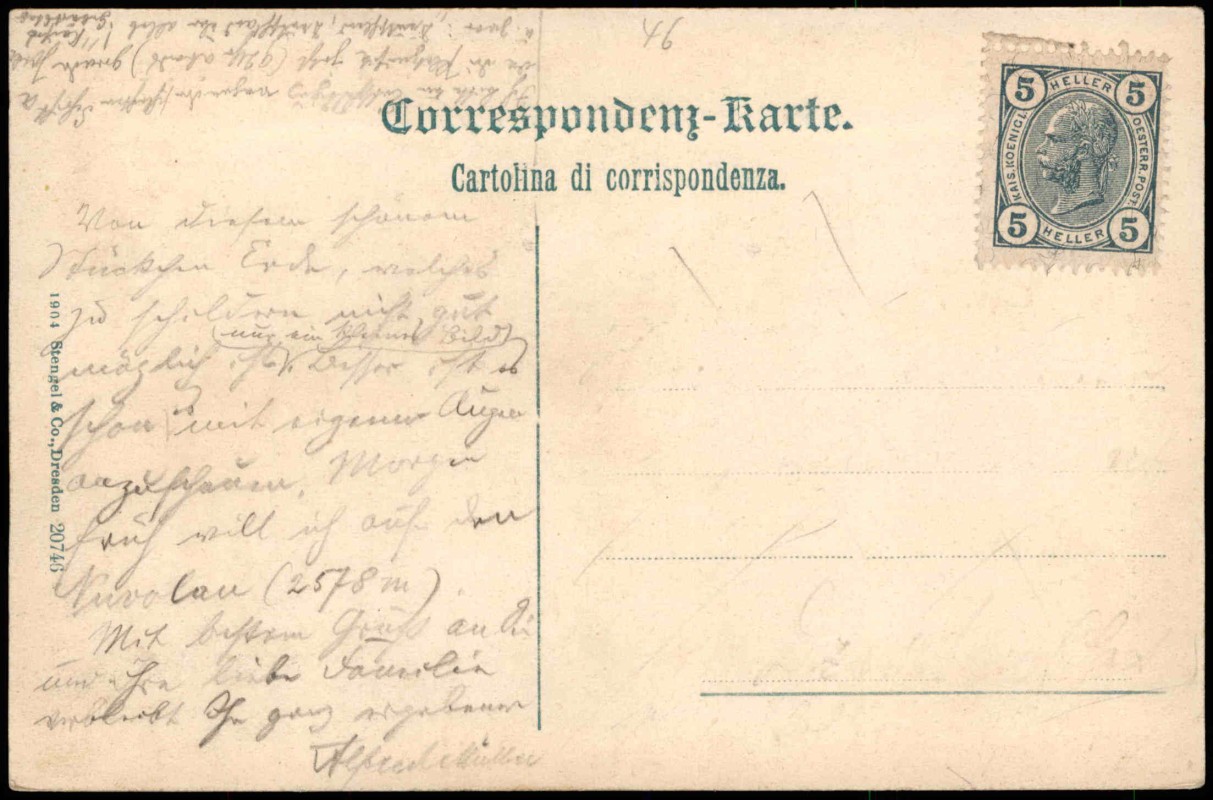 Correspondenz-Karte.
Cartolina di corrispondenza.
5 HELLER 5
KAIS. KOENIGL. OESTERR. POST.
5 HELLER 5
1904 Stengel & Co., Dresden 20746
Von diesem schönem
Stückchen Erde, welches
zu schildern nicht gut
(nur ein kleines Bild)
möglich ist. Besser ist es
schon mit eigenen Augen
anzuschauen. Morgen
früh will ich auf den
Nuvolau (2578 m).
Mit bestem Gruß an Sie
und Ihre liebe Familie
verbleibt Ihr ganz ergebener
Alfred Müller